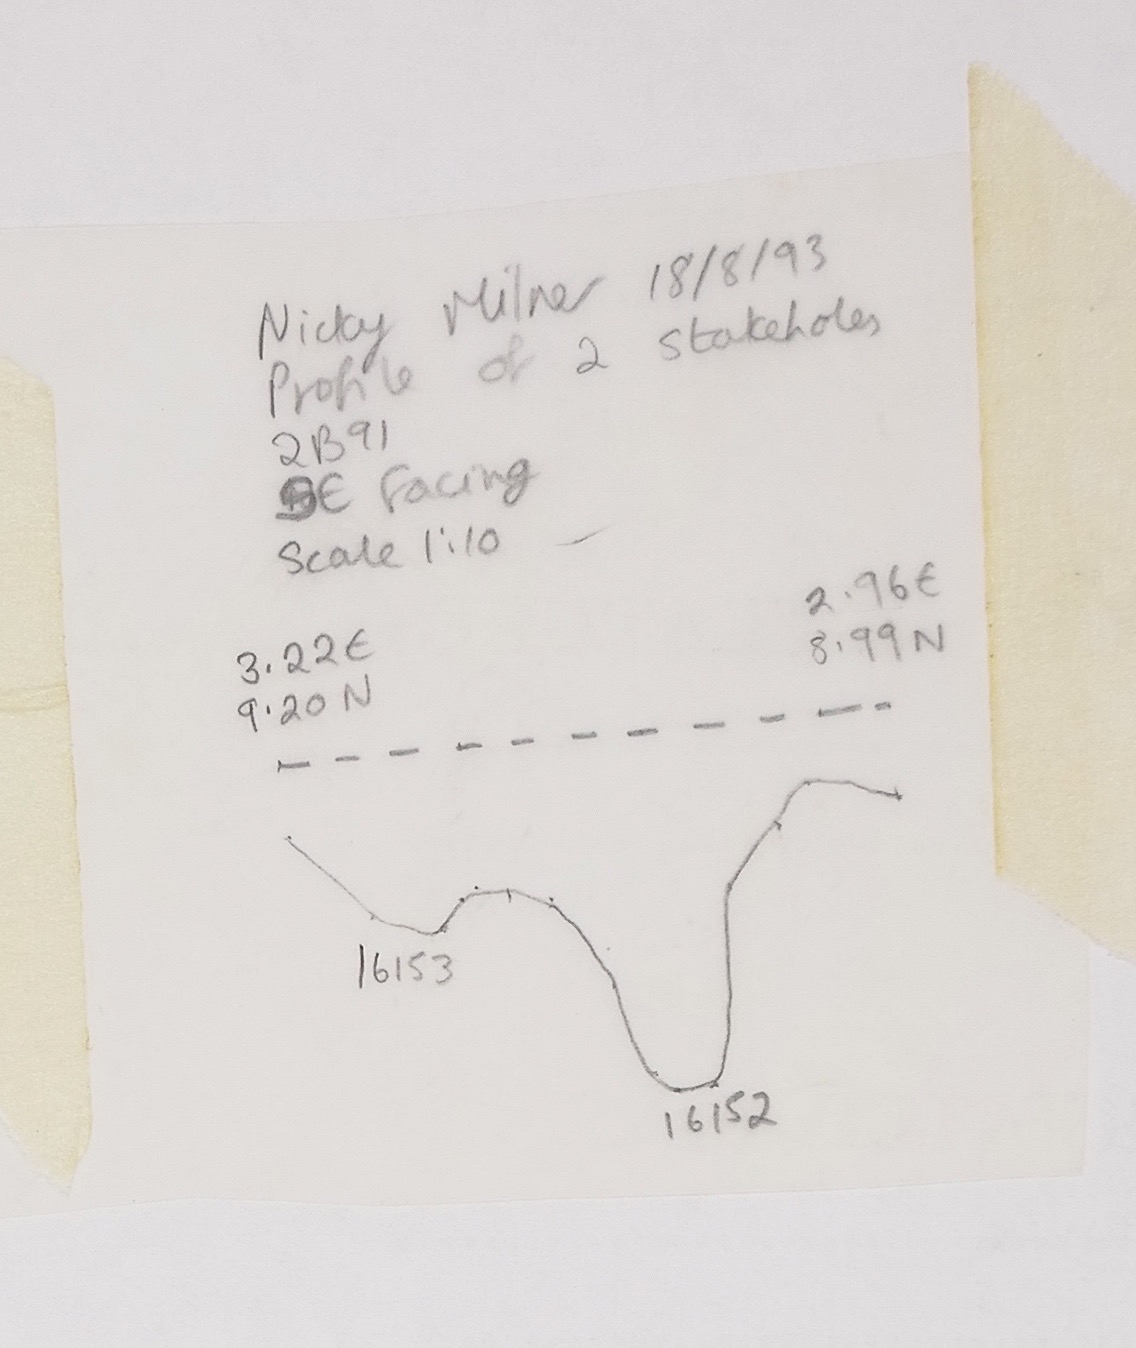 Nicky Milner 18/8/93
Profile of 2 stakeholes
2B91
SE facing
Scale 1:10
2.96E
8.99N
3.22E
9.20N
16153
16152